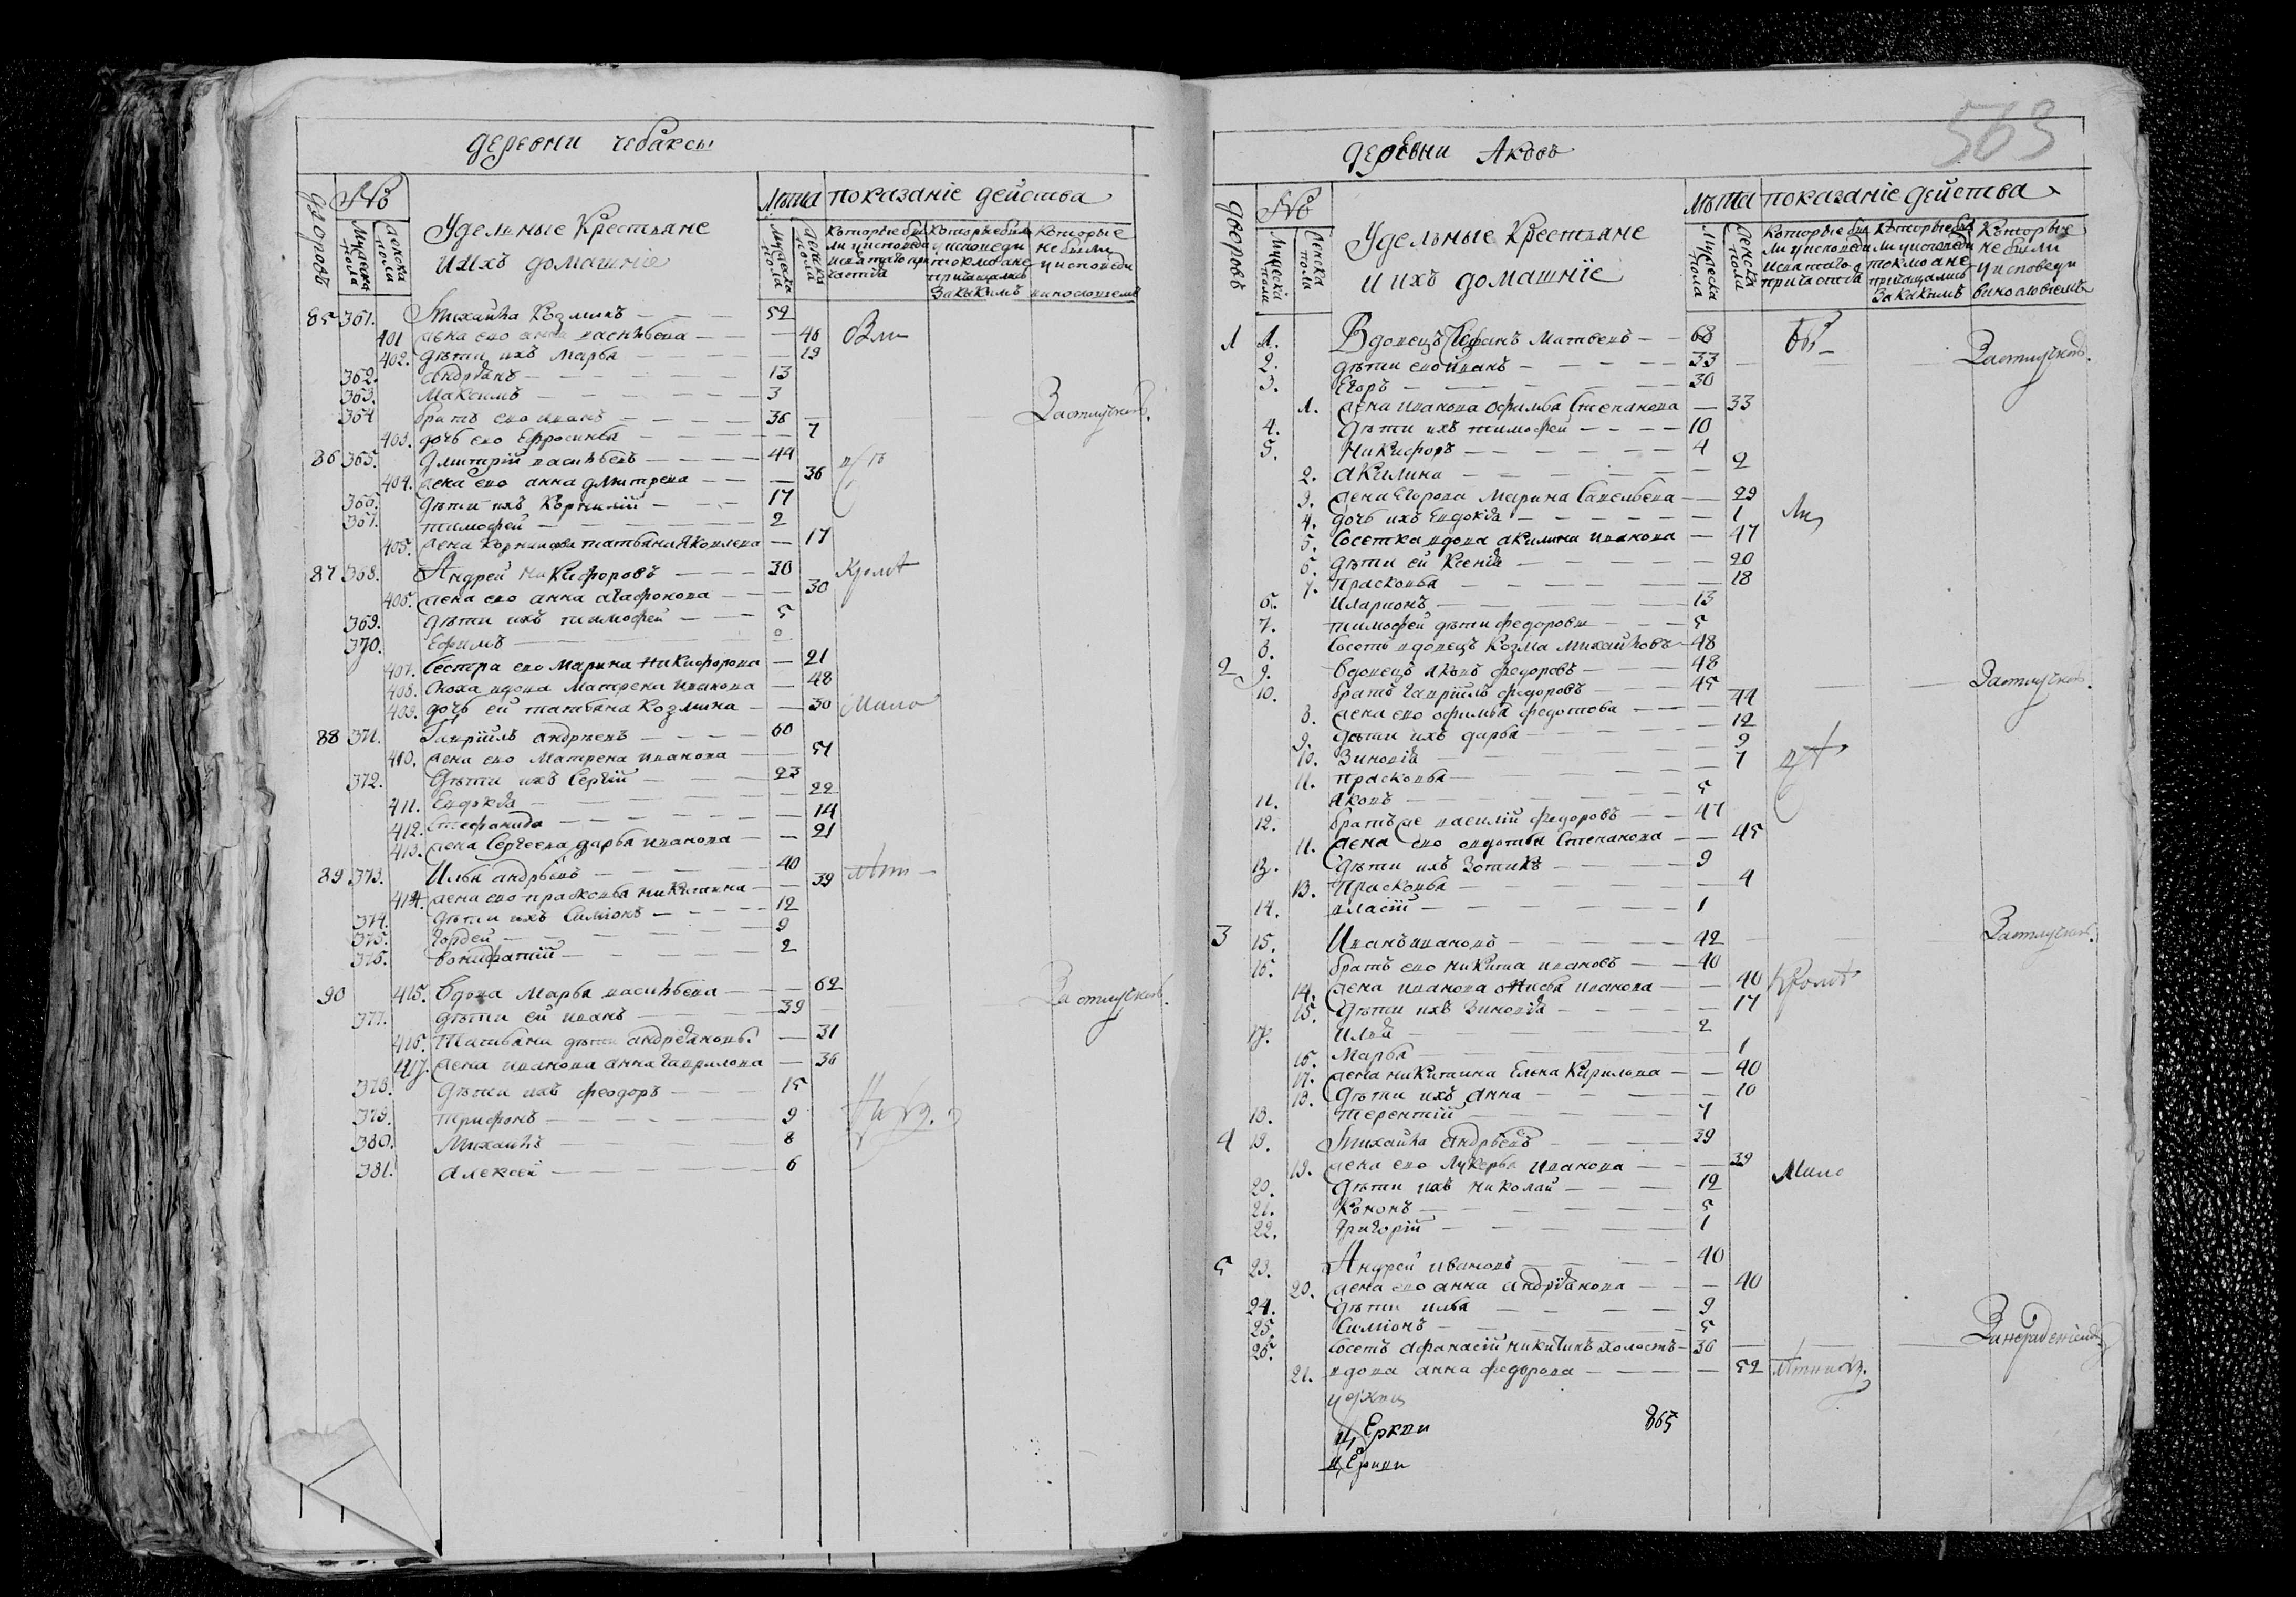 деревни чебаксы
дворовъ
№
мужеска пола
женска пола
Удельные Крестьяне
и ихъ домашніе
лѣта
мужеска пола
женска пола
показаніе действа
которые были у исповеди и святаго причастія
которые были у исповеди токмо а не причащались за какимъ
которые не были у исповеди
85 361. Михаила Козминъ 52
401 жена его анна васильева 40
402. дѣти ихъ Марѳа 19
362. андреянъ 13
363. Максимъ 3
364 братъ его иванъ 36 За отлучкою.
403. дочь его Ефросинья 7
86 365. Дмитрій васильевъ 44
404. жена его анна дмитрева 36
366. дѣти ихъ Корнилій 17
367. тимофей 2
405. жена Корнилова татьяна Яковлева 17
87 368. Андрей никифоровъ 30
406. жена его анна агафонова 30
369. дѣти ихъ тимофей 5
370. Ефимъ
407. Сестра его Марина никифорова 21
408. сноха вдова Матрена иванова 48
409. дочь ей татьяна Козмина 30
88 371. Гавріилъ андрѣевъ 60
410. жена его Матрена иванова 51
372. Дѣти ихъ Сергій 23
411. Евдокія 22
412. Стефанида 14
413. жена Сергеева дарья иванова 21
89 373. Илья андрѣевъ 40
414. жена его прасковья никитина 39
374. дѣти ихъ Симіонъ 12
375. Гордей 9
376. вонифатій 2
90 415. вдова Марѳа васильева 62
377. дѣти ей иванъ 39 За отлучкою.
416. Татьяна дѣти андреяновы. 31
417. жена иванова анна гаврилова 36
378. дѣти ихъ феодоръ 15
379. трифонъ 9
380. Михаилъ 8
381. алексей 6
563
деревни Аковъ
дворовъ
№
мужеска пола
женска пола
Удельные Крестьяне
и ихъ домашніе
лѣта
мужеска пола
женска пола
показаніе действа
которые были у исповеди и святаго причастія
которые были у исповеди токмо а не причащались за какимъ
Которые не были у исповеди
1 1. Вдовецъ Стефанъ Матвеевъ 68
2. дѣти его иванъ 33 За отлучкою.
3. Егоръ 30
1. жена иванова офимья Степанова 33
4. дѣти ихъ тимофей 10
5. никифоръ 4
2. акилина 2
3. жена Егорова Марина Савельева 29
4. дочь ихъ Евдокія 1
5. Соседка вдова акилина иванова 47
6. дѣти ей Ксенія 20
7. прасковья 18
6. иларионъ 13
7. тимофей дѣти федоровы 5
8. Соседъ вдовецъ Козма Михайловъ 48
2 9. вдовецъ яковъ федоровъ 48
10. братъ гавріилъ федоровъ 45 За отлучкою.
8. жена его офимья федотова 44
9. дѣти ихъ дарья 12
10. Зиновія 9
11. прасковья 7
11. яковъ 5
12. братъ же василій федоровъ 47
жена его авдотья Степанова 45
13. дѣти ихъ Зотикъ 9
13. Прасковья 4
14. власій 1
3 15. Иванъ ивановъ 42 За отлучкою.
16. братъ его никита ивановъ 40
14. жена иванова анисья иванова 40
15. дѣти ихъ Зиновія 17
17. Илья 2
16. Марѳа 1
17. жена никитина Елена Кирилова 40
18. дѣти ихъ анна 10
18. терентій 7
4 19. Михаила андрѣевъ 39
19. жена его Лукерья иванова 39
20. дѣти ихъ николай 12
21. Кононъ 5
22. Григорій 1
5 23. Андрей ивановъ 40
20. жена его анна андреянова 40
24. дѣти илья 9
25. Симіонъ 5
26. соседъ афанасій никитинъ холостъ 30 За нерадениемъ
21. вдова анна федорова 52
церкви
церкви 865
церкви